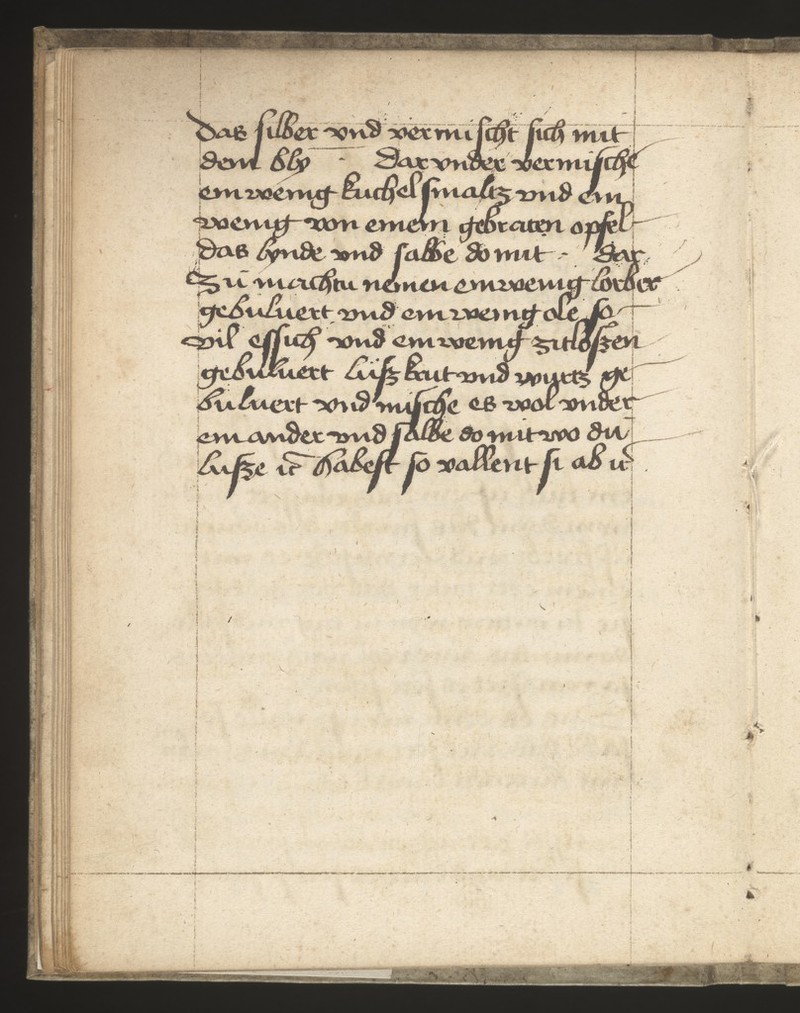 das silber vnd vermischt sich mit
dem bly · Dar vnder vermische
ein wenig kuchel smaltz vnd ein
wenig von einem gebraten opfel
das bynde vnd salbe do mit · Dar
zů machtu nemen ein wenig lorber
gebuluert vnd ein wenig ole so
vil essich vnd ein wenig zitloszen
gebuluert lüsz krut vnd wurtz ge
buluert vnd mische es wol vnder
ein ander vnd salbe do mit wo du
lusze ic̄ habest so vallent si ab ic̄